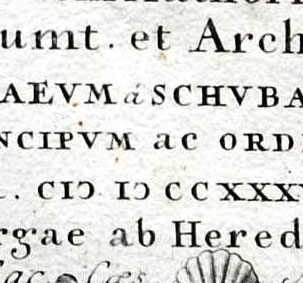 umt. et Arch
AEVM á SCHVBA
NCIPVM ac ORD
. CIↃ IↃ CCXXX
rgae ab Hered